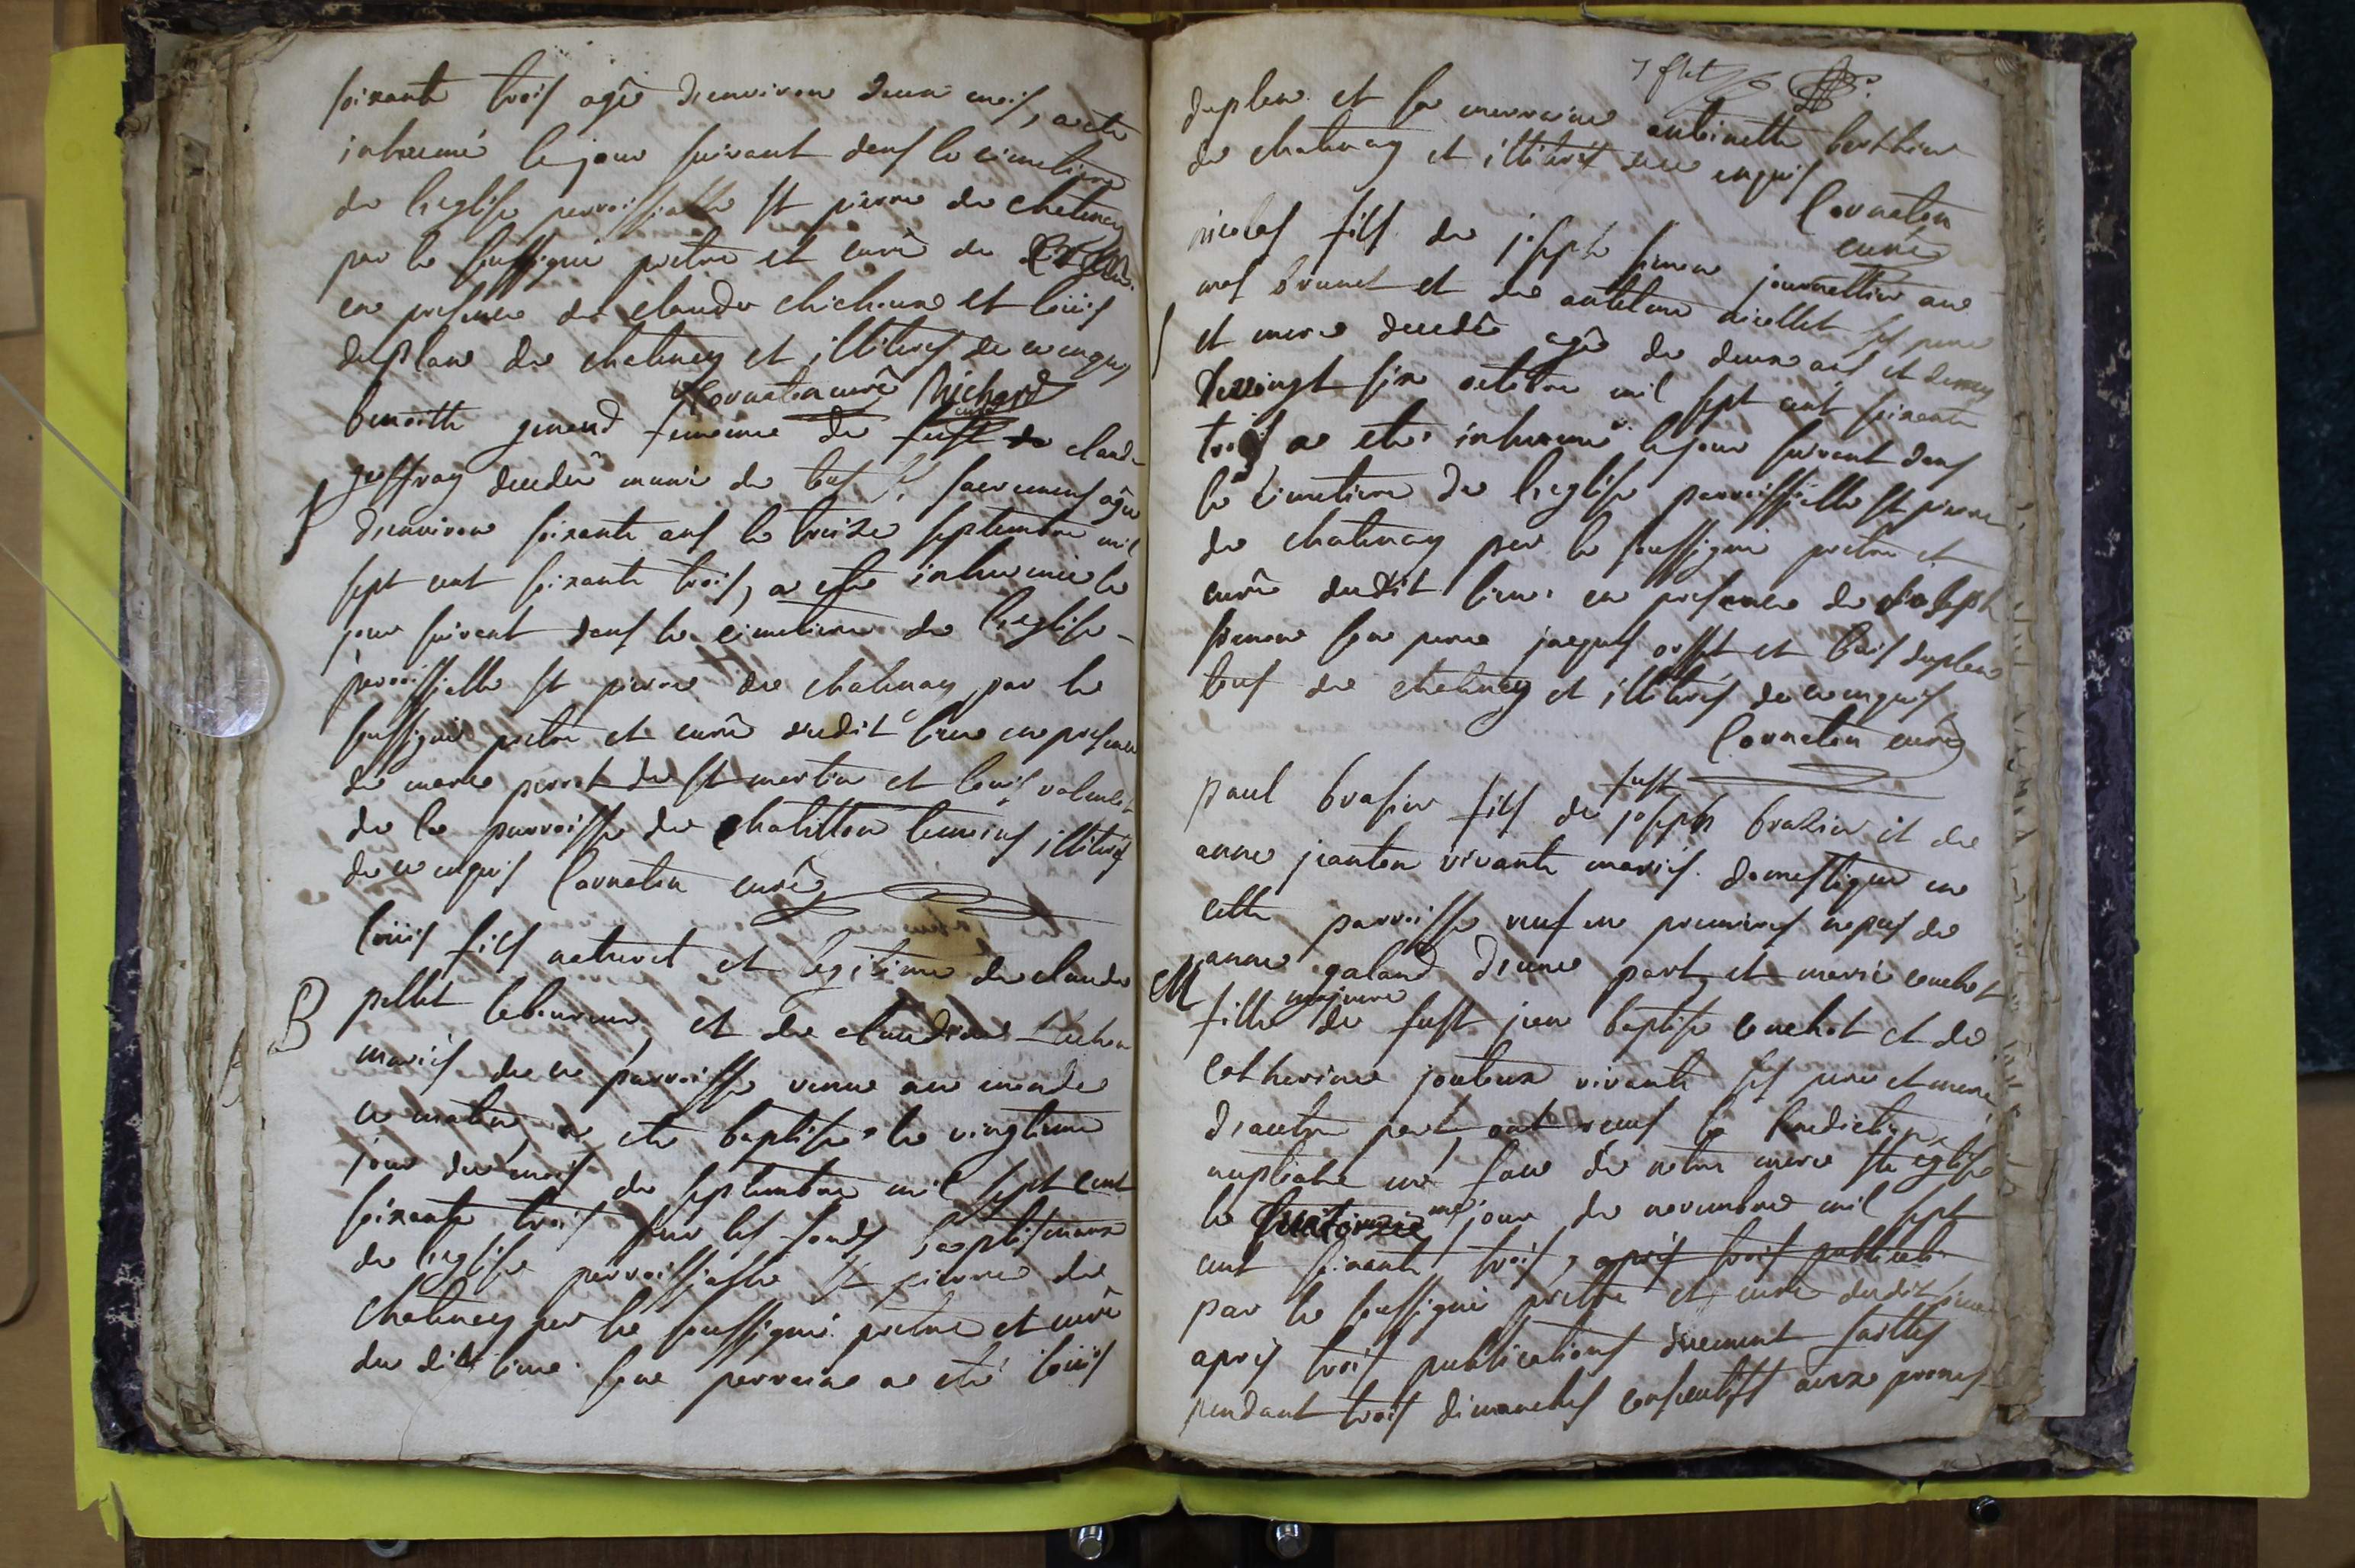 soixante trois agé d'environ deux mois, a eté
inhumé le jour suivant dans le cimetiere
de l'eglise parroissialle St pierre de chatenay
par le soussigné pretre et curé du
en presence de claude chichoux et loüis
duplan de chatenay et illiterés de ce enquis
Cornaton curé Michard
benoitte genend femme de claude
geoffray decedée munie de tous ses sacrements agée
d'environ soixante ans le treize septembre mil
sept cent soixante trois, a eté inhumée le
jour suivant dans le cimetiere de l'eglise
parroissialle St pierre de chatenay par le
soussigné pretre et curé dudit lieu en presence
de marc perret de St martin et loüis
de la parroisse de chatillon temoins illiterés
de ce enquis Cornaton curé
B
loüis fils naturel et legitime de claude
pellet laboureur, et de claudine
mariés de ce parroisse venu au monde
ce matin, a eté baptisé le vingtieme
jour du mois de septembre mil sept cent
soixante trois sur les fonds baptismaux
de l'eglise parroissialle St pierre de
chatenay par le soussigné pretre et curé
du dit lieu. son parrain a eté loüis
duplan et sa marraine antoinette berthier
de chatenay et illiterés de ce enquis
Cornaton
curé
nicolas fils de joseph simon journallier au
mas brunet et de anthelme niollet ses pere
et mere decedé agé de deux ans et demy
le vingt six octobre mil sept cent soixante
trois a eté inhumé le jour suivant dans
le cimetiere de l'eglise parroissialle St pierre
de chatenay par le soussigné pretre et
curé dudit lieu en presence de joseph
simon son pere jacques et loüis duplan
tous de chatenay et illiterés de ce enquis
Cornaton curé
fust
paul brasier fils de joseph brasier et de
anne jeanton vivants mariés domestique en
cette parroisse veuf en premieres nopces de
M
anne galand d'une part, et marie couchot
majeure
fille de fust jean baptiste couchot et de
catherine jouteux vivante ses pere et mere,
d'autre part, ont reçus la benediction
nuptiale en face de notre mere Ste eglise
le jour de novembre mil sept
cent soixante trois, après trois publicati
par le soussigné pretre et curé dudit lieu
après trois publications duement faittes
pendant trois dimanches consecutifs aux prones